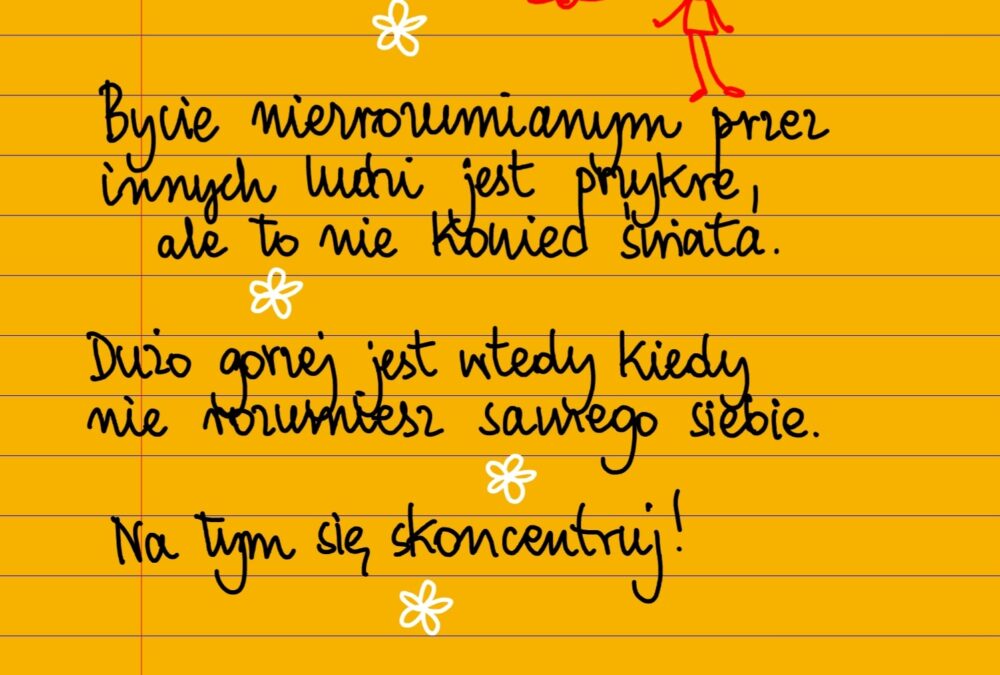 Bycie nierozumianym przez
innych ludzi jest przykre,
ale to nie koniec świata.
Dużo gorzej jest wtedy kiedy
nie rozumiesz samego siebie.
Na tym się skoncentruj!